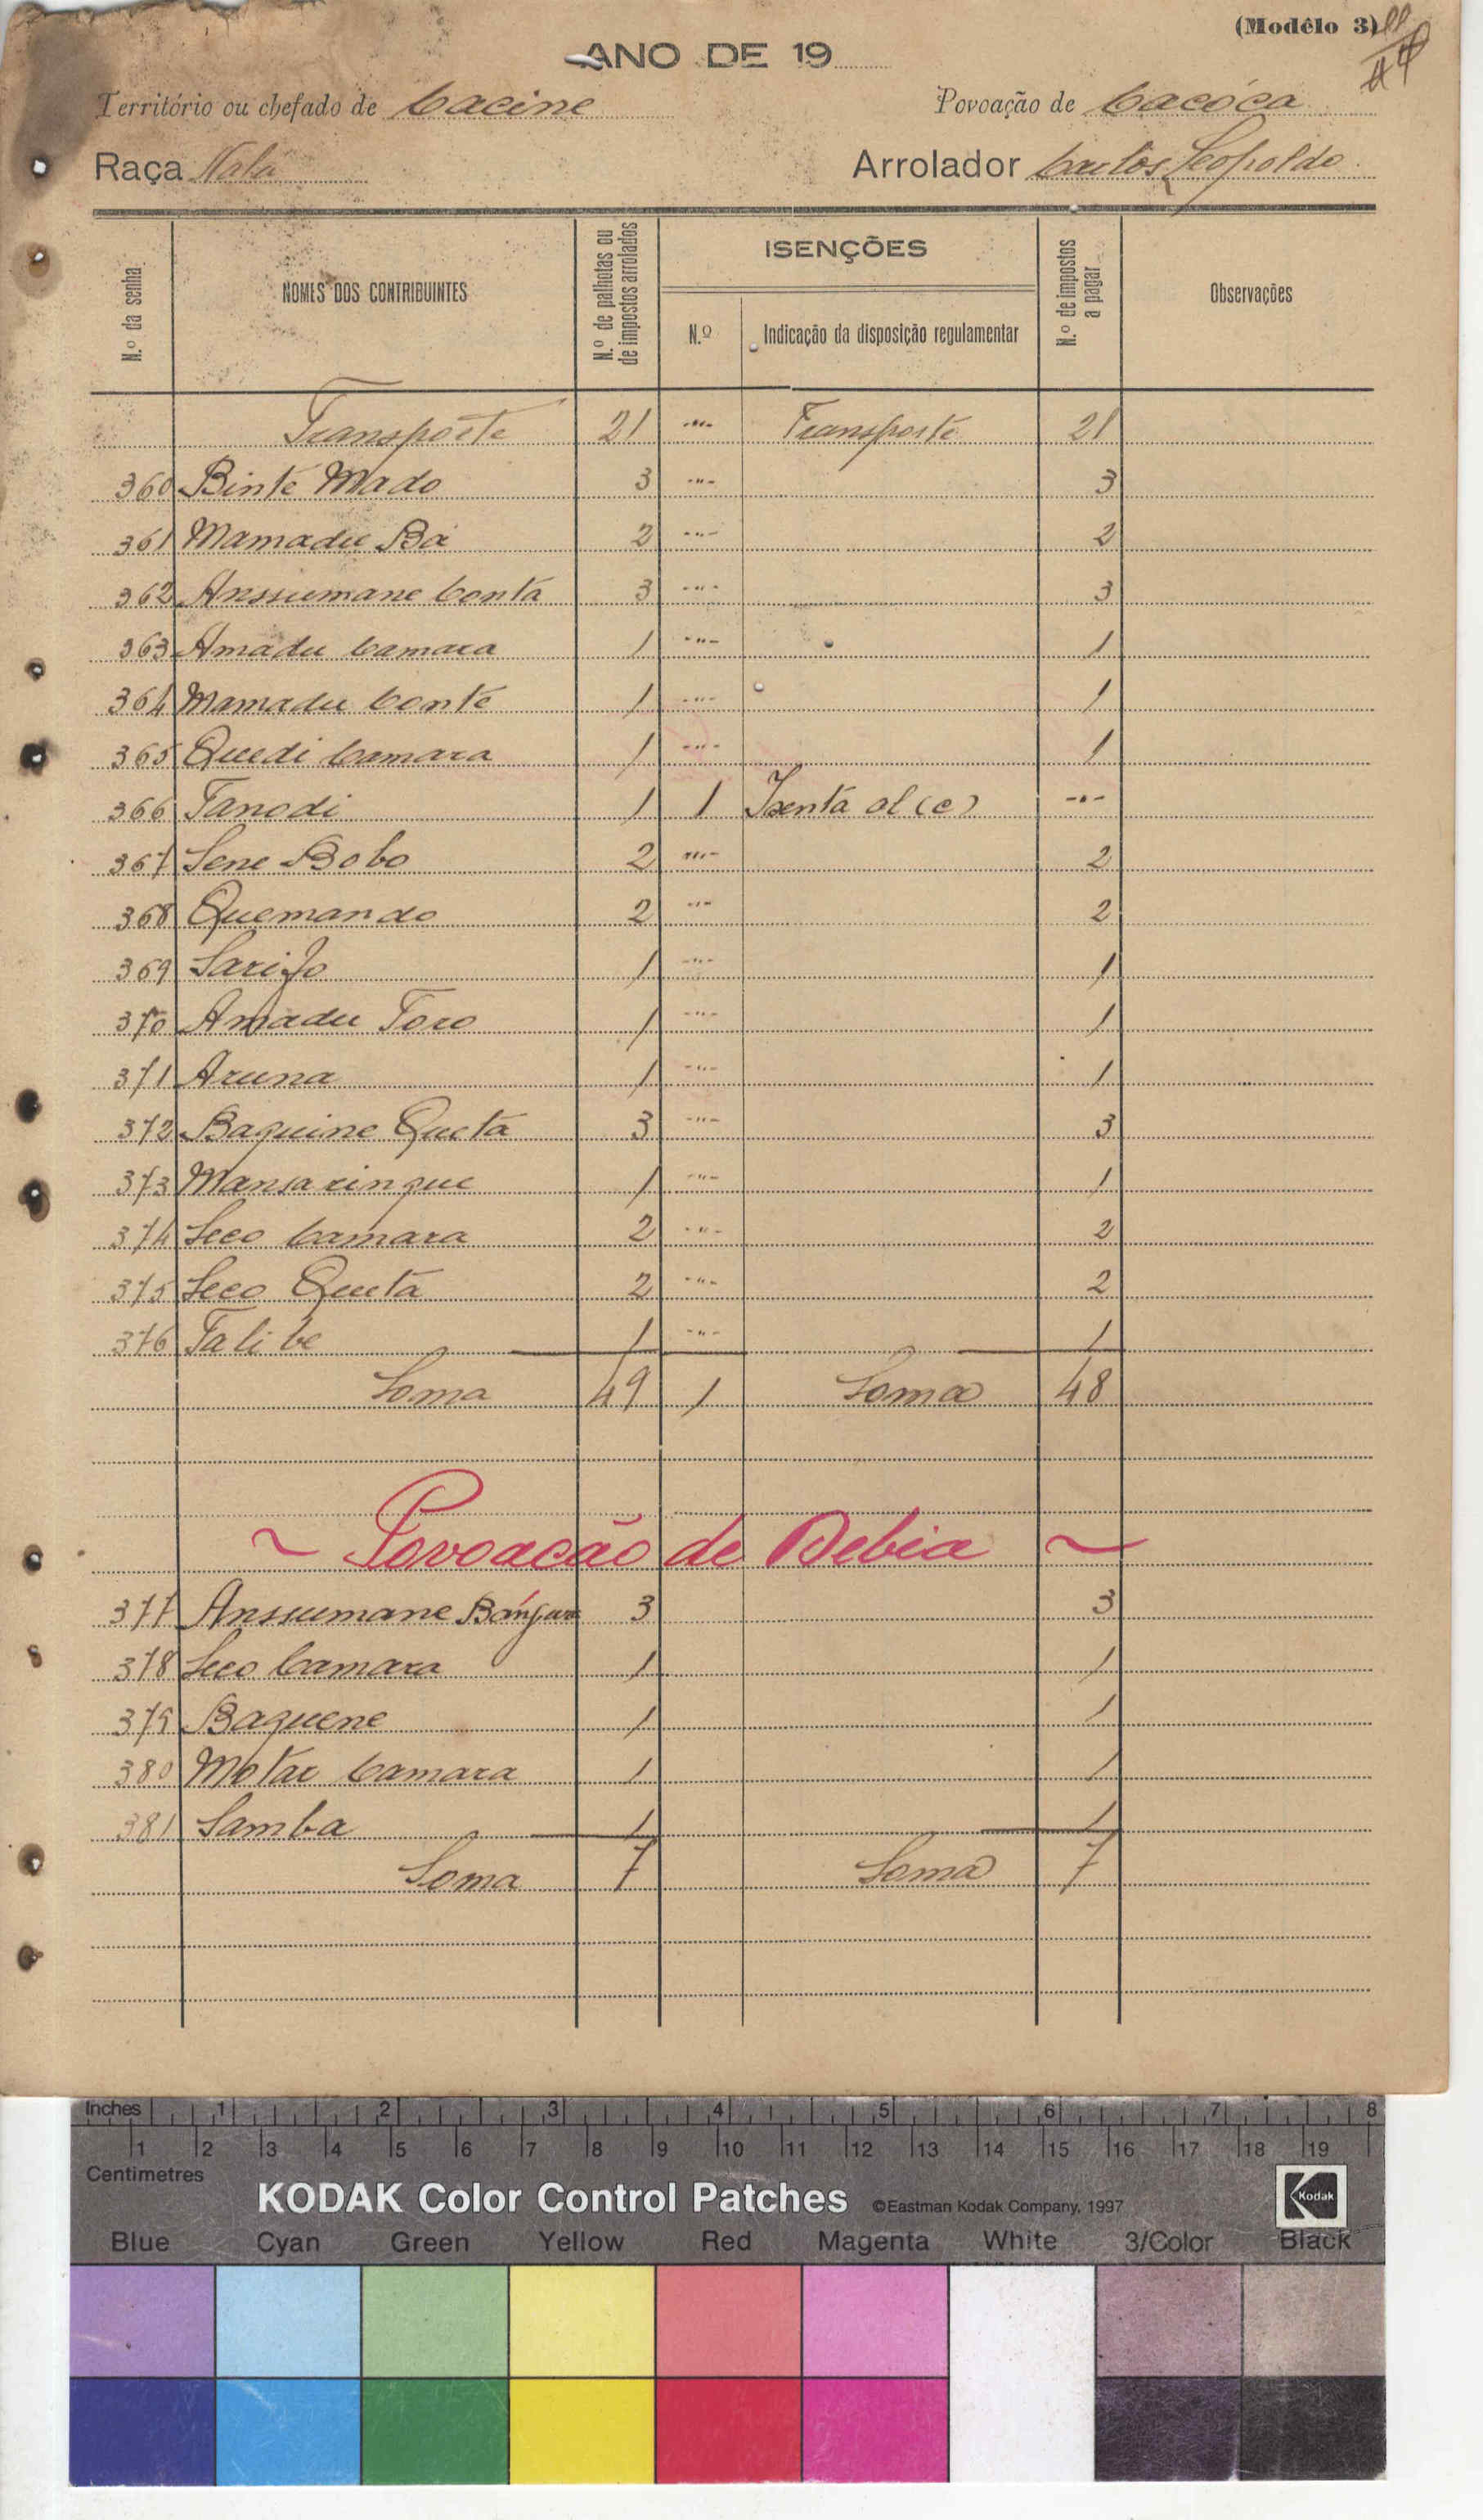 (Modêlo 3)
ANO DE 19
Território ou chefado de Cacine Povoação de Cacóca
Raça Nalú Arrolador Carlos Leopoldo
N.º da senha NOMES DOS CONTRIBUINTES N.º de palhotas ou de impostos arrolados ISENÇÕES N.º Indicação da disposição regulamentar N.º de impostos a pagar Observações
Transporte 21 -"- Transporte 21
360 Binté Mado 3 -"- 3
361 Mamadu Bá 2 -"- 2
362 Anssumane Contá 3 -"- 3
363 Amadu Camara 1 -"- 1
364 Mamadu Conté 1 -"- 1
365 Quedi Camara 1 -"- 1
366 Tanodi 1 1 Isenta al (e) -"-
367 Sene Bobo 2 -"- 2
368 Quemando 2 -"- 2
369 Sarifo 1 -"- 1
370 Amadu Toro 1 -"- 1
371 Aruna 1 -"- 1
372 Baquine Queta 3 -"- 3
373 Mansaringue 1 -"- 1
374 Seco Camara 2 -"- 2
375 Seco Queta 2 -"- 2
376 Talibe 1 -"- 1
Soma 49 1 Soma 48
~ Povoacão de Debia ~
377 Anssumane Bángura 3 3
378 Seco Camara 1 1
379 Baquene 1 1
380 Motar Camara 1 1
381 Samba 1 1
Soma 7 Soma 7
Inches 1 2 3 4 5 6 7 8
1 2 3 4 5 6 7 8 9 10 11 12 13 14 15 16 17 18 19
Centimetres
KODAK Color Control Patches ©Eastman Kodak Company, 1997 Kodak
Blue Cyan Green Yellow Red Magenta White 3/Color Black